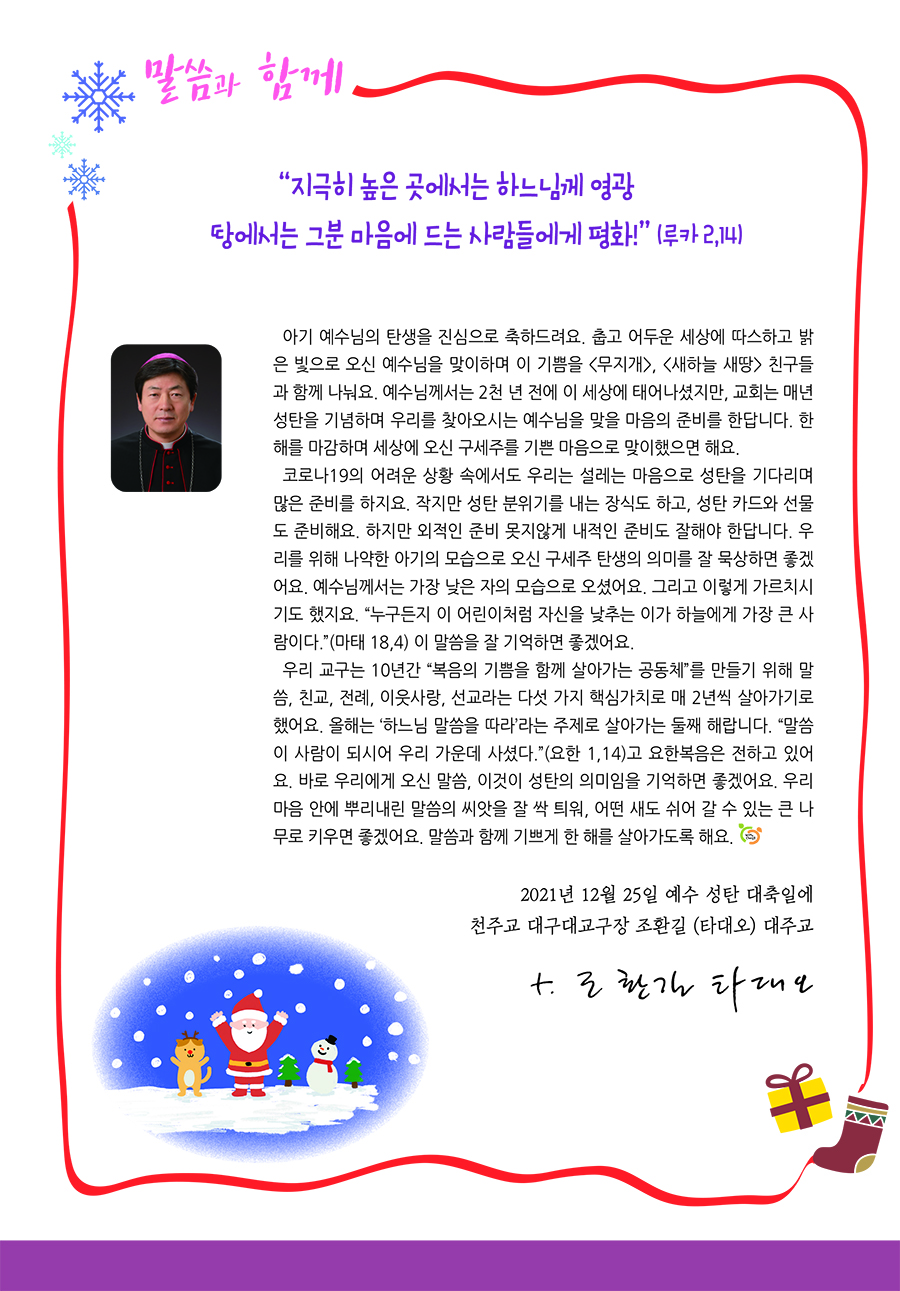 말씀과 함께
“지극히 높은 곳에서는 하느님께 영광
땅에서는 그분 마음에 드는 사람들에게 평화!” (루카 2,14)
아기 예수님의 탄생을 진심으로 축하드려요. 춥고 어두운 세상에 따스하고 밝
은 빛으로 오신 예수님을 맞이하며 이 기쁨을 <무지개>, <새하늘 새땅> 친구들
과 함께 나눠요. 예수님께서는 2천 년 전에 이 세상에 태어나셨지만, 교회는 매년
성탄을 기념하며 우리를 찾아오시는 예수님을 맞을 마음의 준비를 한답니다. 한
해를 마감하며 세상에 오신 구세주를 기쁜 마음으로 맞이했으면 해요.
코로나19의 어려운 상황 속에서도 우리는 설레는 마음으로 성탄을 기다리며
많은 준비를 하지요. 작지만 성탄 분위기를 내는 장식도 하고, 성탄 카드와 선물
도 준비해요. 하지만 외적인 준비 못지않게 내적인 준비도 잘해야 한답니다. 우
리를 위해 나약한 아기의 모습으로 오신 구세주 탄생의 의미를 잘 묵상하면 좋겠
어요. 예수님께서는 가장 낮은 자의 모습으로 오셨어요. 그리고 이렇게 가르치시
기도 했지요. “누구든지 이 어린이처럼 자신을 낮추는 이가 하늘에게 가장 큰 사
람이다.”(마태 18,4) 이 말씀을 잘 기억하면 좋겠어요.
우리 교구는 10년간 “복음의 기쁨을 함께 살아가는 공동체”를 만들기 위해 말
씀, 친교, 전례, 이웃사랑, 선교라는 다섯 가지 핵심가치로 매 2년씩 살아가기로
했어요. 올해는 ‘하느님 말씀을 따라’라는 주제로 살아가는 둘째 해랍니다. “말씀
이 사람이 되시어 우리 가운데 사셨다.”(요한 1,14)고 요한복음은 전하고 있어
요. 바로 우리에게 오신 말씀, 이것이 성탄의 의미임을 기억하면 좋겠어요. 우리
마음 안에 뿌리내린 말씀의 씨앗을 잘 싹 틔워, 어떤 새도 쉬어 갈 수 있는 큰 나
무로 키우면 좋겠어요. 말씀과 함께 기쁘게 한 해를 살아가도록 해요.
2021년 12월 25일 예수 성탄 대축일에
천주교 대구대교구장 조환길 (타대오) 대주교
+. 조 환길 타대오